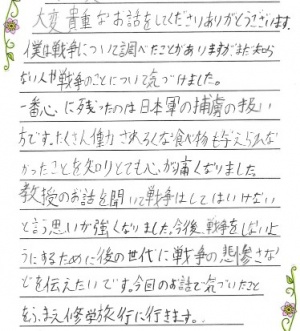 大変貴重なお話をしてくださりありがとうございます。
僕は戦争について調べたことがありますがまだ知ら
ない人や戦争のことについて気づけました。
一番心に残ったのは日本軍の捕虜の扱い
方です。たくさん働かされろくな食べ物も与えられな
かったことを知りとても心が痛くなりました。
教授のお話を聞いて戦争はしてはいけない
と言う思いが強くなりました。今後、戦争をしないよ
うにするために後の世代に戦争の悲惨さな
どを伝えたいです。今回のお話で気づいたこと
をふまえ修学旅行に行きます。